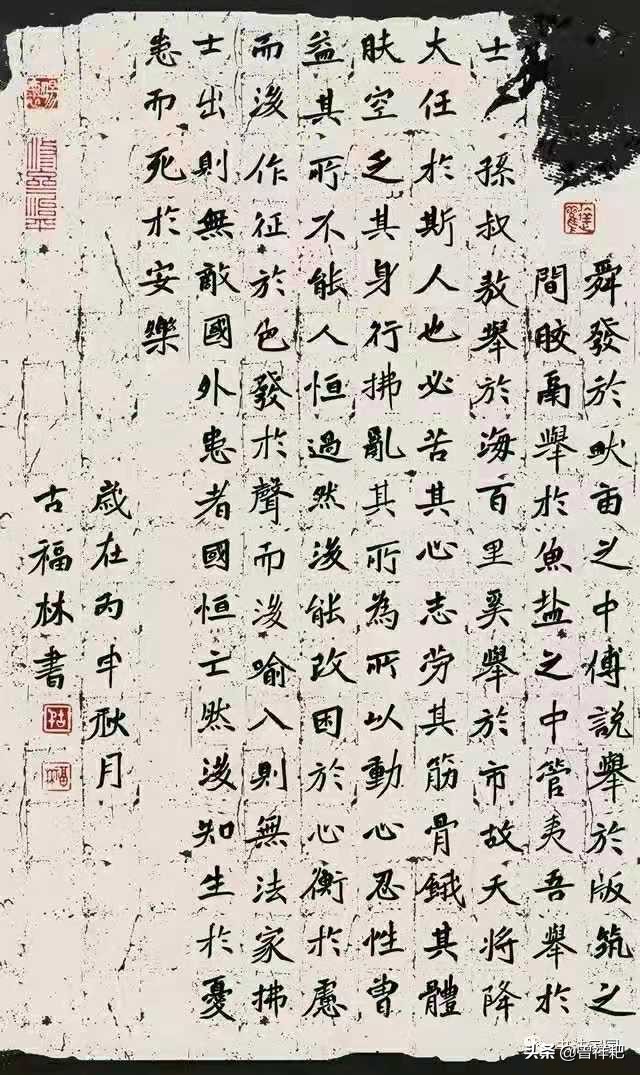 舜發於畎亩之中傅說舉於版筑之
間胶鬲舉於魚盐之中管夷吾舉於
士孫叔敖舉於海百里奚舉於市故天將降
大任於斯人也必苦其心志劳其筋骨餓其體
肤空乏其身行拂亂其所為所以動心忍性曾
益其所不能人恒過然後能改困於心衡於慮
而後作征於色發於聲而後喻入則無法家拂
士出則無敵國外患者國恒亡然後知生於憂
患而死於安樂
歲在丙申秋月
古福林書
头条